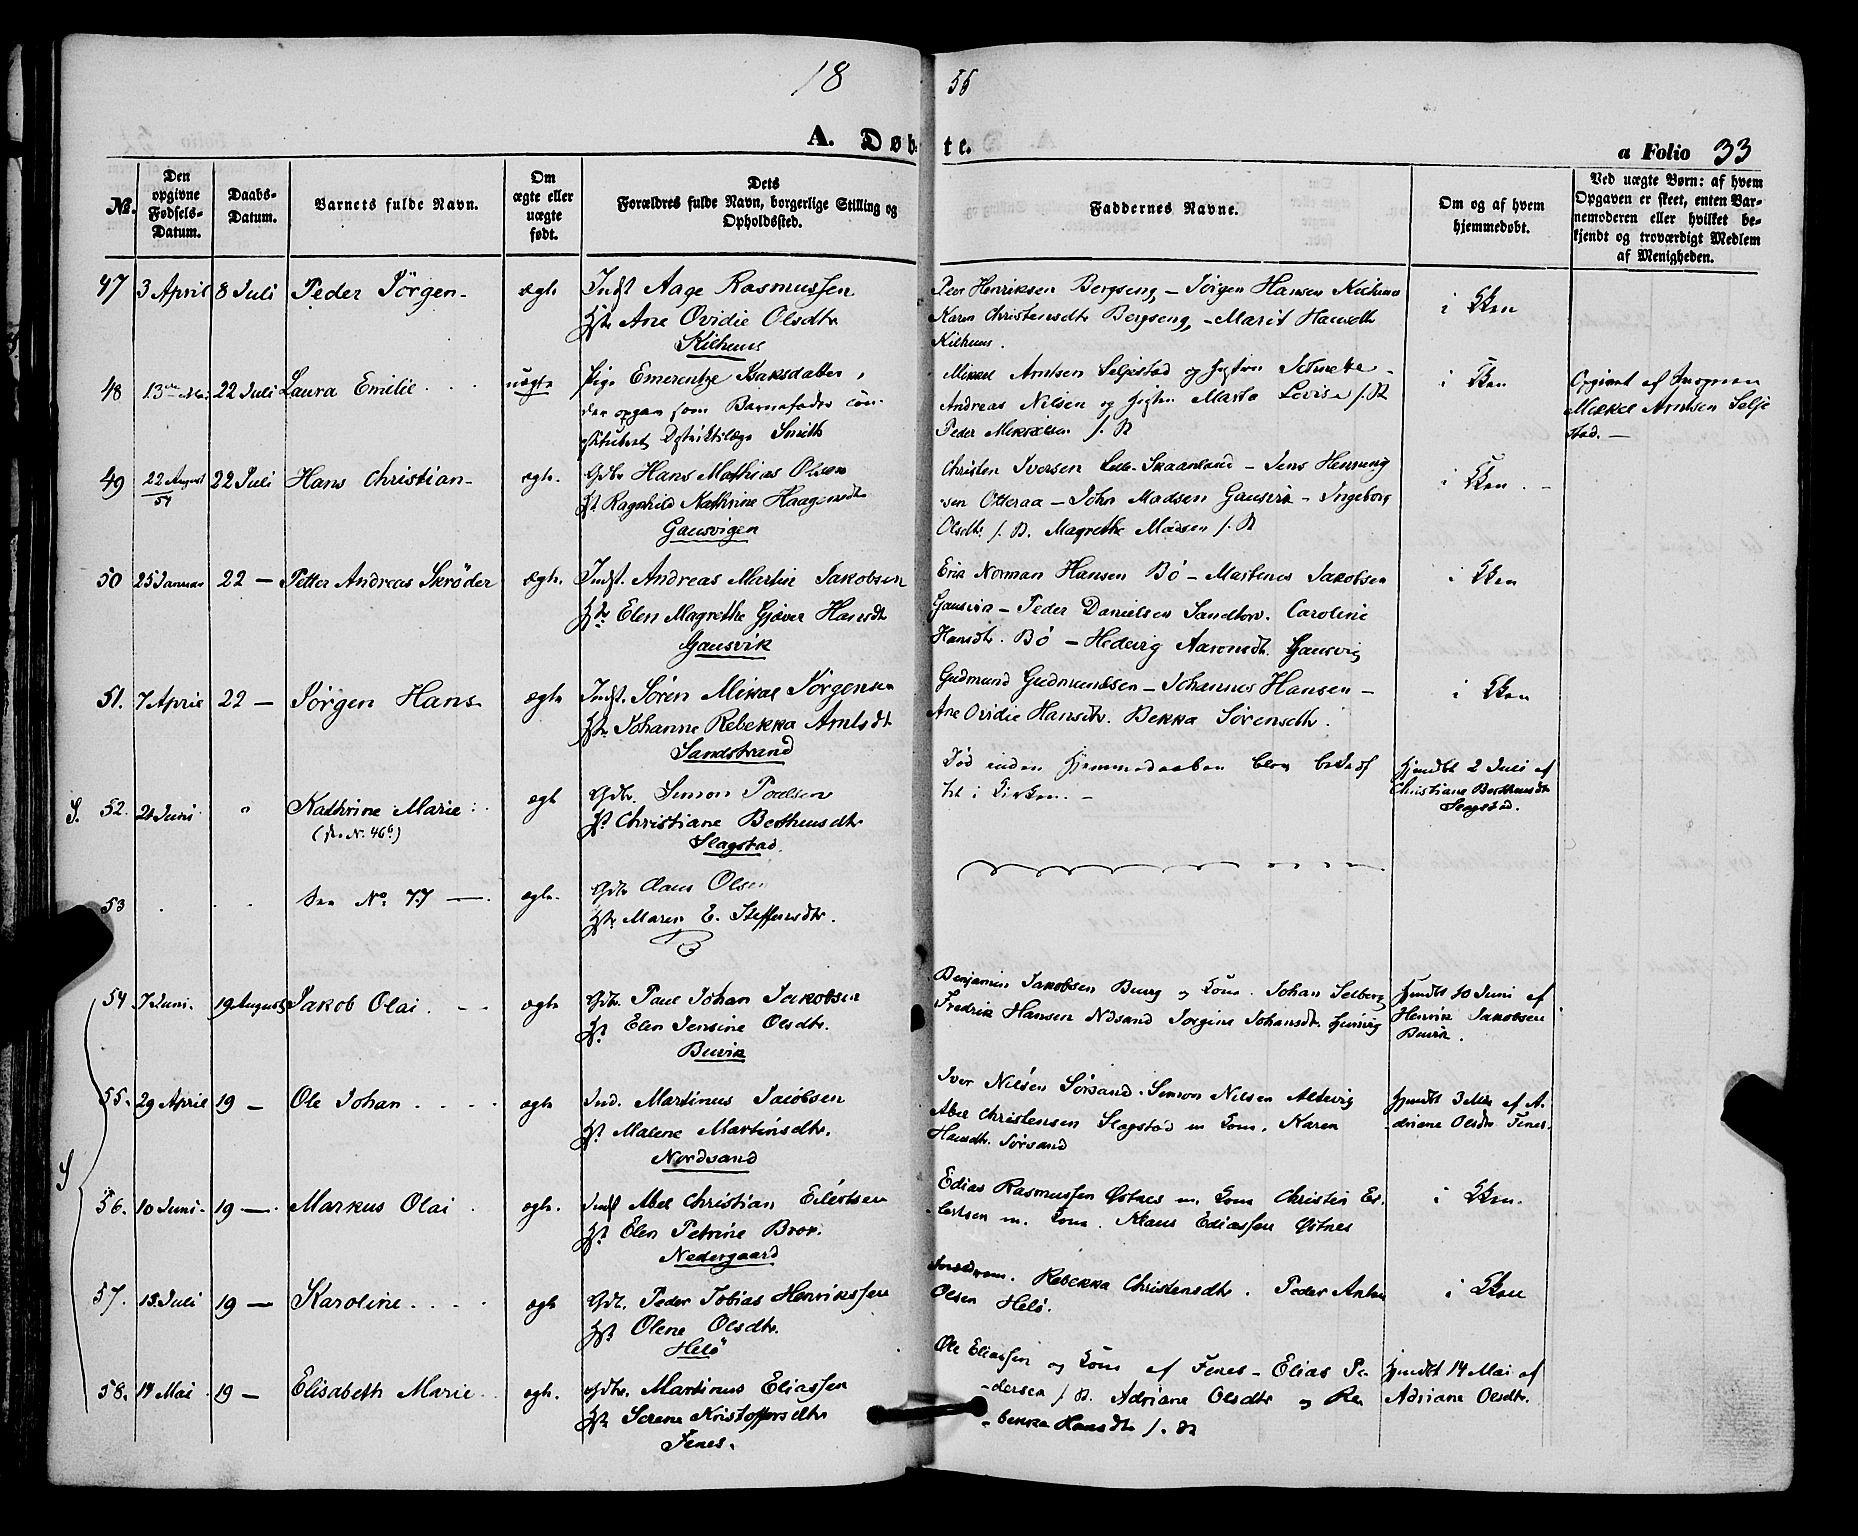 18 55
A. Døbte.
a Folio 33
№.
Den opgivne Fødsels-Datum.
Daabs-Datum.
Barnets fulde Navn.
Om ægte eller uægte født.
Dets Forældres fulde Navn, borgerlige Stilling og Opholdssted.
Faddernes Navne.
Om og af hvem hjemmedøbt.
Ved uægte Børn: af hvem Opgaven er skeet, enten Barnemoderen eller hvilket bekjendt og troværdigt Medlem af Menigheden.
47 3 April 8 Juli Peder Jörgen ægte Indst Aage Rasmussen
Hst Ane Ovidie Olsdtr
Kilhus
Peer Henriksen Bergseng – Jörgen Hansen
Karen Christensdtr Bergseng – Marit Hansdtr
Kilhus.
i Kken
48 13de 22 Juli Laura Emilie uægte Pige Emerentze Isaksdatter,
der opgav som Barnefader con-
stitueret Distriktslæge Smith
Mikkel Arntsen Seljestad og
Andreas Nilsen og Marta Lovise
Peder Mikkelsen
i Kken
Opgivet af
Mikkel Arntsen Selje
stad. –
49 22 August 54 22 Juli Hans Christian ægte. Gdbr Hans Mathias Olsen
Hst Ragnhild Kathrine Haagensdtr
Gausvigen
Christen Iversen Skaanland – Jens Henning
sen Otteraa – John Madsen Gausvik – Ingeborg
Olsdtr. Magrethe Madsen
i Kken. –
50 25 Januar 22 – Petter Andreas Skröder ægte. Indst. Andreas Martin Jakobsen
Hst Elen Magrethe Gjæver Hansdtr
Gausvik
Erik Norman Hansen Bö – Martenus Jakobsen
Gausvik – Peder Danielsen Sandtorv. Caroline
Hansdtr. Bö – Hedevig Aaronsdtr. Gausvig
i Kken
51. 7 April 22 – Jörgen Hans ægte Indst. Sören Mikal Jörgensen
Hst Johanne Rebekka Arntsdtr
Sandstrand
Gudmund Gudmundsen – Johannes Hansen –
Ane Ovidie Hansdtr. Bekka Sörensdtr.
i Kken
S. 52. 21 Juni " Kathrine Marie
(se No. 46b)
ægte Gdbr. Simon Poulsen
Hst Christiane Bertheusdtr
Slagstad.
Död inden Hjemmedaaben blev
i Kirken. –
Hjemdöbt 2 Juli af
Christiane Bertheusdtr
Slagstad.
53 . . See No. 77 – ægte. Gdbr Claus Olsen
Hst Maren E. Steffensdtr.
54 7 Juni. 19 August Jakob Olai. ægte Gdbr. Paul Johan Jakobsen
Hst Elen Jensine Olsdtr.
Buvik
Benjamin Jakobsen Buvig og Kone. Johan Selberg
Fredrik Hansen Ndsand Jorgine Johansdtr.
Hjemdöbt 10 Juni af
Henrik Jakobsen
Buvik.
55. 29 April 19 – Ole Johan ægte Ind. Martinus Jacobsen
Hst Malene Martinsdtr.
Nordsand
Iver Nilsen Sörsand. Simon Nilsen Altevig
Abel Christensen Slagstad m Kone. Karen
Hansdtr. Sörsand
Hjemdöbt 3 Mai af A-
driane Olsdtr Fenes.
S
56. 10 Juni. 19 – Markus Olai ægte. Indst Abel Christian Eilertsen
Hst Elen Petrine Bror.
Nedergaard
Edias Rasmussen Östnes m. Kone Christen Ei-
lertsen m. Kone. Klaus Ediassen Östnes
i Kken.
57. 15 Juli 19 – Karoline ægte Gdb. Peder Tobias Henrikssen
Hst Olene Olsdtr.
Helö
Forældrene. Rebekka Christensdtr. Peder Anton
Olsen Helö.
i Kken
58. 14 Mai 19 – Elisabeth Marie ægte. Gdbr. Martinus Eliassen
Hst Serene Kristoffersdtr
Fenes.
Ole Eliassen og Kone af Fenes – Elias Pe-
dersen Adriane Olsdtr og Re
bekka Hansdtr
Hjemdöbt 14 Mai af
Adriane Olsdtr.